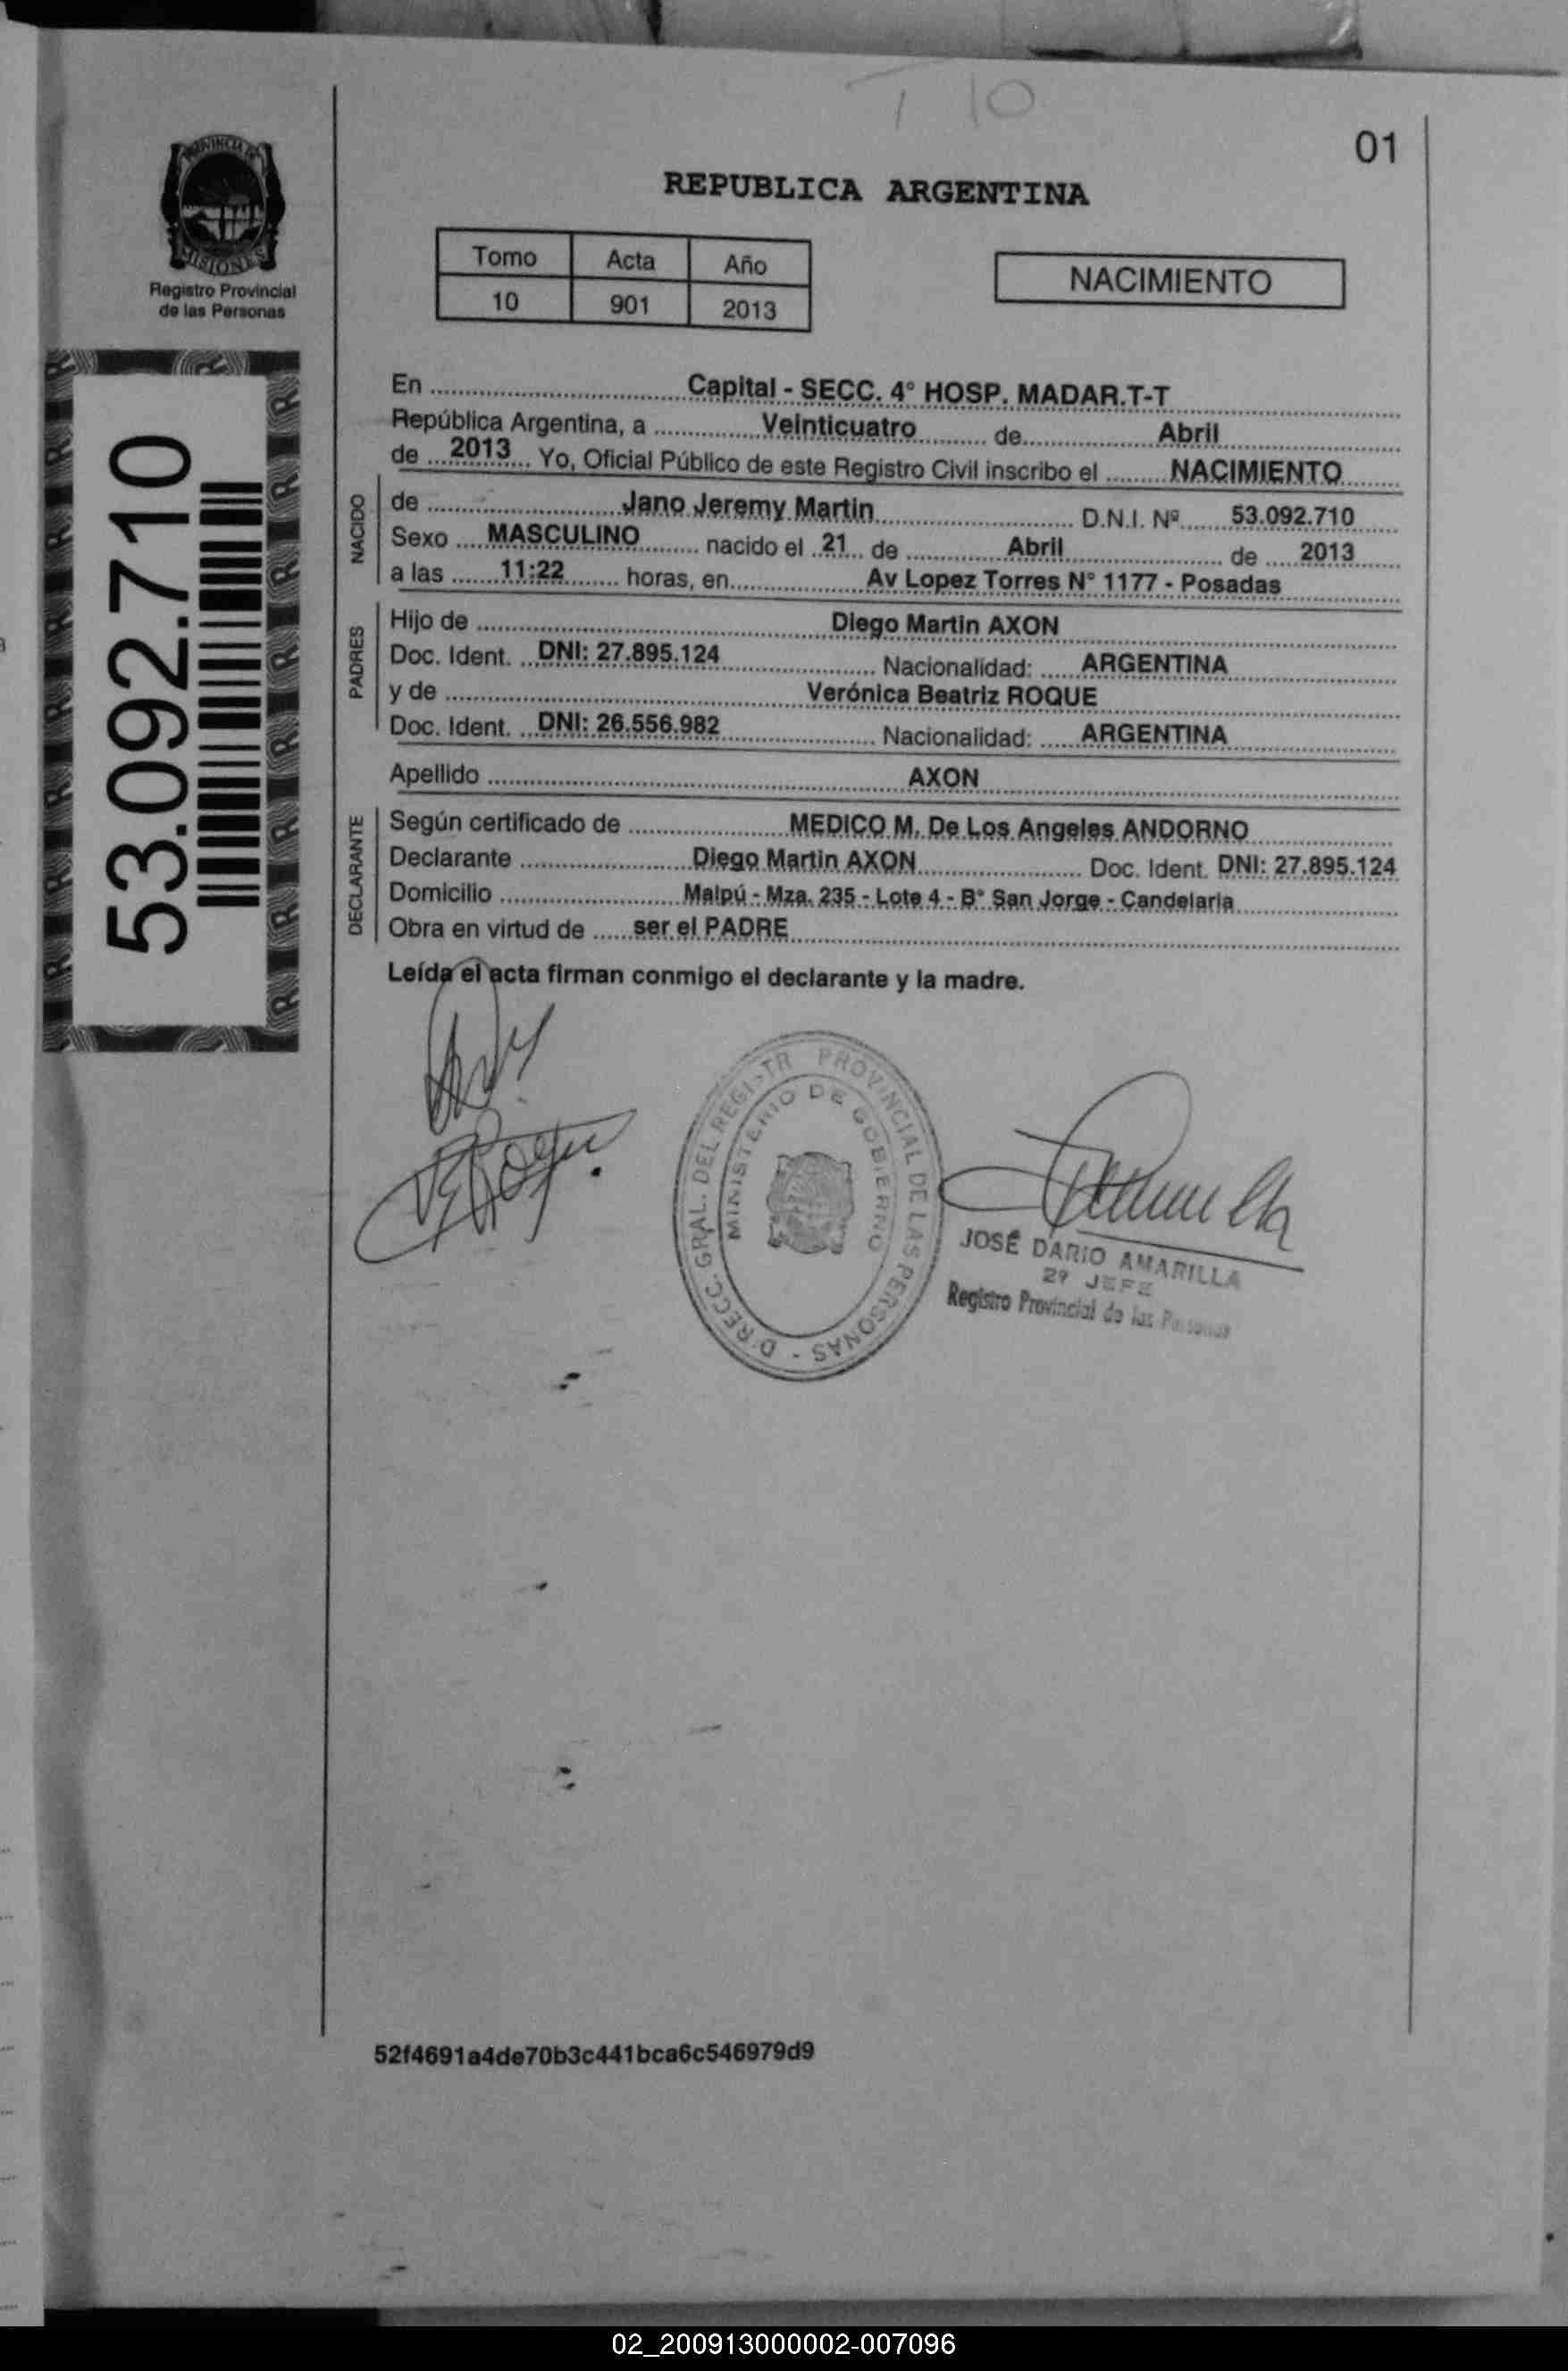 T 10
01
PROVINCIA DE
MISIONES
Registro Provincial
de las Personas
53.092.710
REPUBLICA ARGENTINA
Tomo Acta Año
10 901 2013
NACIMIENTO
En ........ Capital - SECC. 4° HOSP. MADAR.T-T
República Argentina, a ........ Veinticuatro ........ de ........ Abril
de ... 2013 ... Yo, Oficial Público de este Registro Civil inscribo el ........ NACIMIENTO
NACIDO
de ........ Jano Jeremy Martin ........ D.N.I. Nº ........ 53.092.710
Sexo ..... MASCULINO ........ nacido el .. 21 ... de ........ Abril ........ de ..... 2013
a las ....... 11:22 ........ horas, en ........ Av Lopez Torres N° 1177 - Posadas
PADRES
Hijo de ........ Diego Martin AXON
Doc. Ident. ... DNI: 27.895.124 ........ Nacionalidad: ...... ARGENTINA
y de ........ Verónica Beatriz ROQUE
Doc. Ident. ... DNI: 26.556.982 ........ Nacionalidad: ...... ARGENTINA
Apellido ........ AXON
DECLARANTE
Según certificado de ........ MEDICO M. De Los Angeles ANDORNO
Declarante ........ Diego Martin AXON ........ Doc. Ident. DNI: 27.895.124
Domicilio ........ Maipú - Mza. 235 - Lote 4 - B° San Jorge - Candelaria
Obra en virtud de ...... ser el PADRE
Leída el acta firman conmigo el declarante y la madre.
DIRECC. GRAL. DEL REGISTR PROVINCIAL DE LAS PERSONAS -
MINISTERIO DE GOBIERNO
JOSÉ DARIO AMARILLA
2º JEFE
Registro Provincial de las Personas
52f4691a4de70b3c441bca6c546979d9
02_200913000002-007096